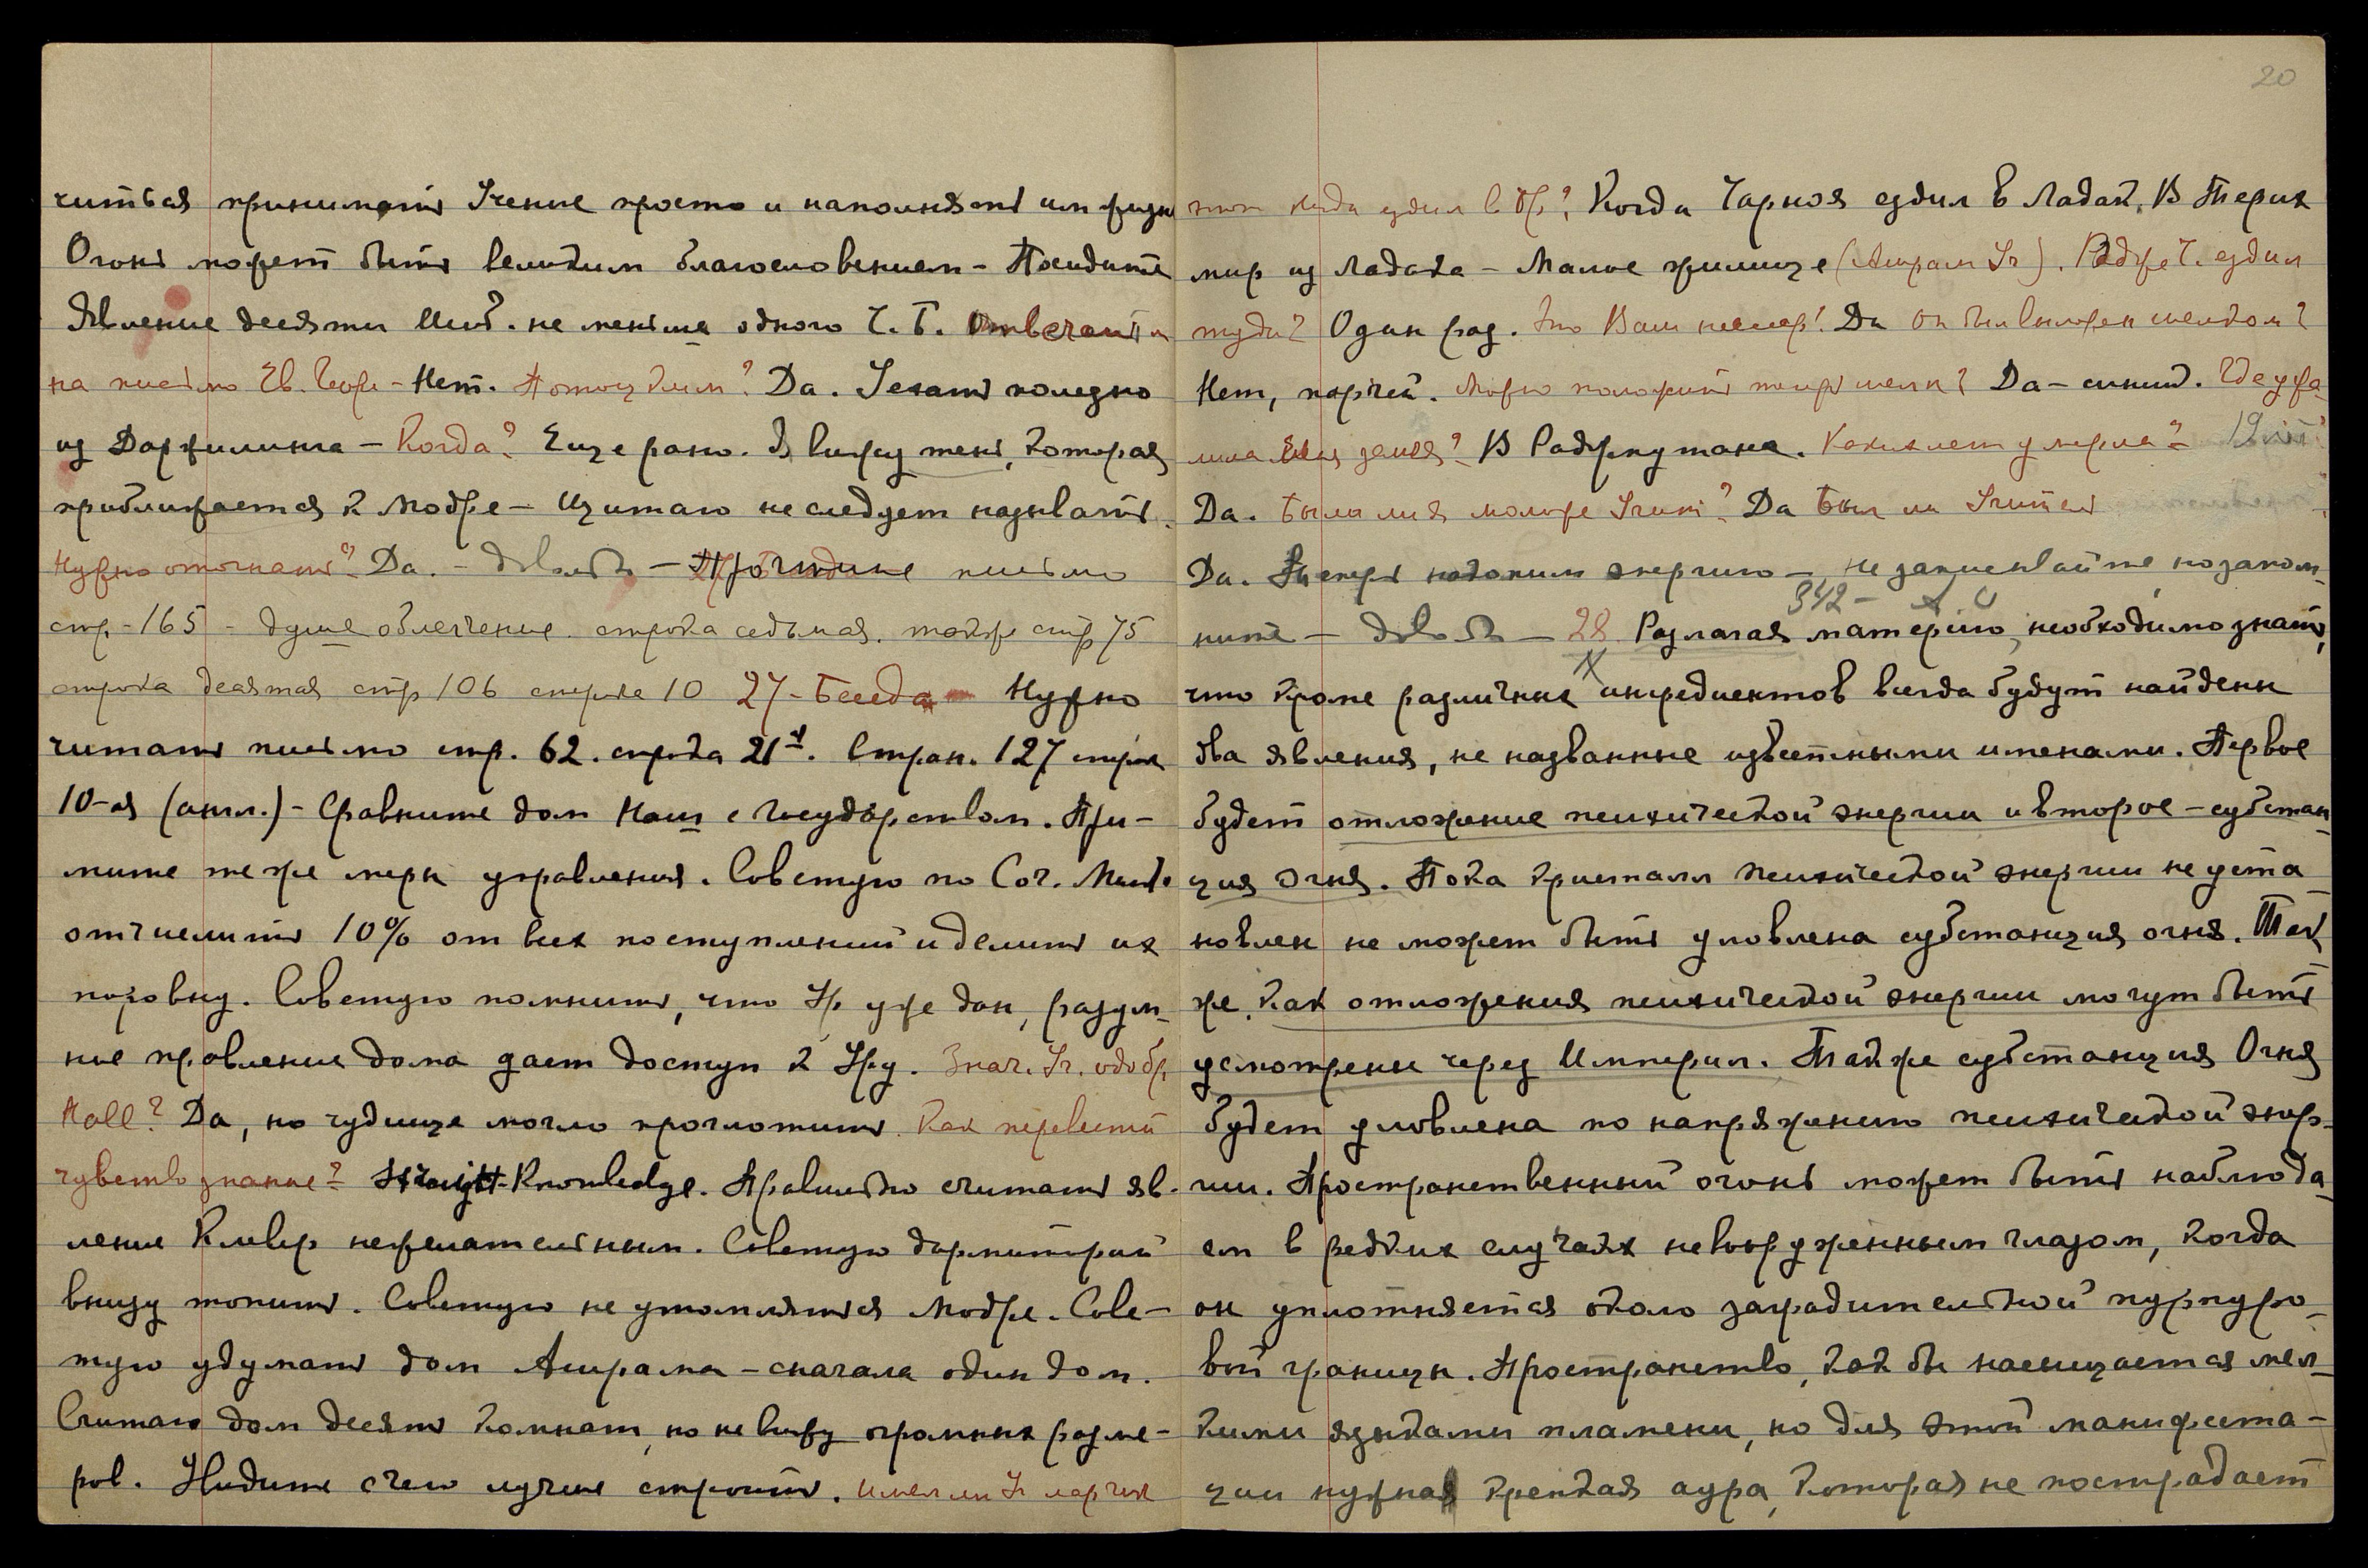 читься принимать Учение просто и наполнять им жизнь
Огонь может быть великим благословением – Посидите
Явление десяти Шиб. не меньше одного Ч. Б. Отвечать ли
на письмо Ев. Геор. – Нет. Потом? Да. Уехать полезно
из Дарджилинга – Когда? Еще рано. Я вижу тень, которая
приближается к Модре – Изитаго не следует называть.
Нужно отогнать? Да. – довольно – Прочтите письмо
стр – 165 – душе облегчение. строка седьмая. также стр 75
строка десятая стр 106 строка 10 27 – Беседа Нужно
читать письмо стр. 62. строка 21я. Стран. 127 строка
10-я (англ.) – Сравните дом Наш с государством. При-
мите те же меры управления. Советую по Соч. Маст.
отчислить 10% от всех поступлений и делить их
поровну. Советую помнить, что Ур уже дан, разум-
ное правление дома дает доступ к Уру. Знач. Уч. одобр.
Hall? Да, но чудище могло проглотить. Как перевести
чувствознание? Straight-Knowledge. Правильно считать яв-
ление Кливер нежелательным. Советую дормиторий
внизу топить. Советую не утомляться Модре. Сове-
тую удумать дом Ашрама – сначала один дом.
Считаю дом десять комнат, но не вижу огромных разме-
ров. Увидите с чего лучше строить. Имел ли Уч ларчик
20
этот когда ездил в Тр.? Когда Чарноя ездил в Ладак. В Терих
мир из Ладака – Малое жилище (Ашрам Уч). Радже Ч. ездил
туда? Один раз. Это Ваш пример? Да Он был выложен шелком?
Нет, парчой. Можно положить теперь шелк? Да – синий. Где уме-
жила земля? В Раджпутана. Скольких лет умерла? 19 лет?
Да. Была ли я моложе Учит? Да Был ли Учитель
Да. Теперь накопим энергию – не записывайте но запом-
ните – довольно – 28 Разлагая материю, необходимо знать,
342 –
что кроме различных ингредиентов всегда будут найдены
два явления, не названные известными именами. Первое
будет отложение психической энергии и второе – субстан-
ция огня. Пока кристалл психической энергии не уста
новлен не может быть уловлена субстанция огня. Так
же, как отложения психической энергии могут быть
усмотрены через Империл. Также субстанция Огня
будет уловлена по напряжению психической энер-
гии. Пространственный огонь может быть наблюда-
ем в редких случаях невооруженным глазом, когда
он уплотняется около заградительной пурпуро-
вой границы. Пространство, как бы насыщается мел-
кими языками пламени, но для этой манифеста-
ции нужна крепкая аура, которая не пострадает